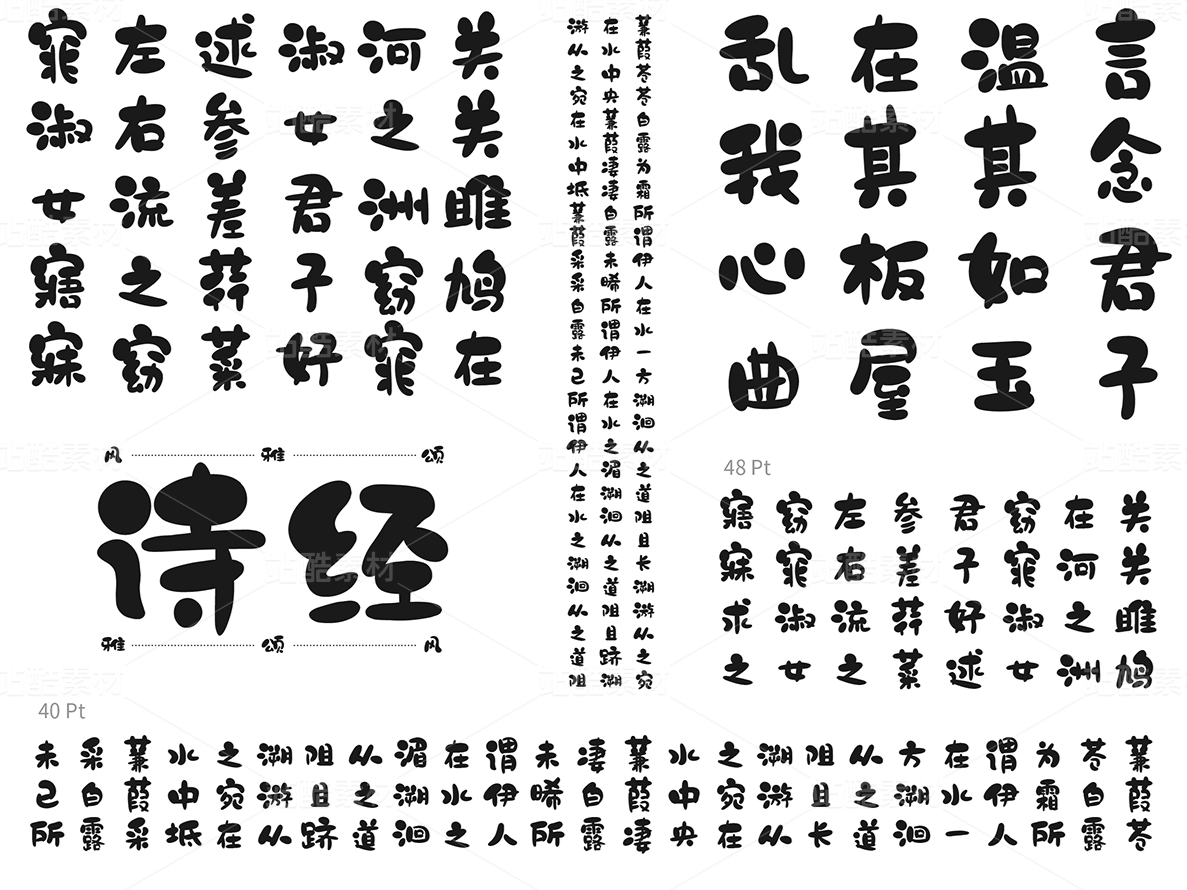 关关雎鸠在
河之洲窈窕
淑女君子好
述参差葬菜
左右流之窈
窕淑女寤寐
蒹葭苍苍白露为霜所谓伊人在水一方溯洄从之道阻且长溯游从之宛
在水中央蒹葭凄凄白露未晞所谓伊人在水之湄溯洄从之道阻且跻溯
游从之宛在水中坻蒹葭采采白露未已所谓伊人在水之溯洄从之道阻
言念君子
温其如玉
在其板屋
乱我心曲
风 雅 颂
诗经
雅 颂 风
48 Pt
关关雎鸠
在河之洲
窈窕淑女
君子好述
参差葬菜
左右流之
窈窕淑女
寤寐求之
40 Pt
蒹葭苍
苍白露
为霜所
谓伊人
在水一
方溯洄
从之道
阻且长
溯游从
之宛在
水中央
蒹葭凄
凄白露
未晞所
谓伊人
在水之
湄溯洄
从之道
阻且跻
溯游从
之宛在
水中坻
蒹葭采
采白露
未已所
站酷素材